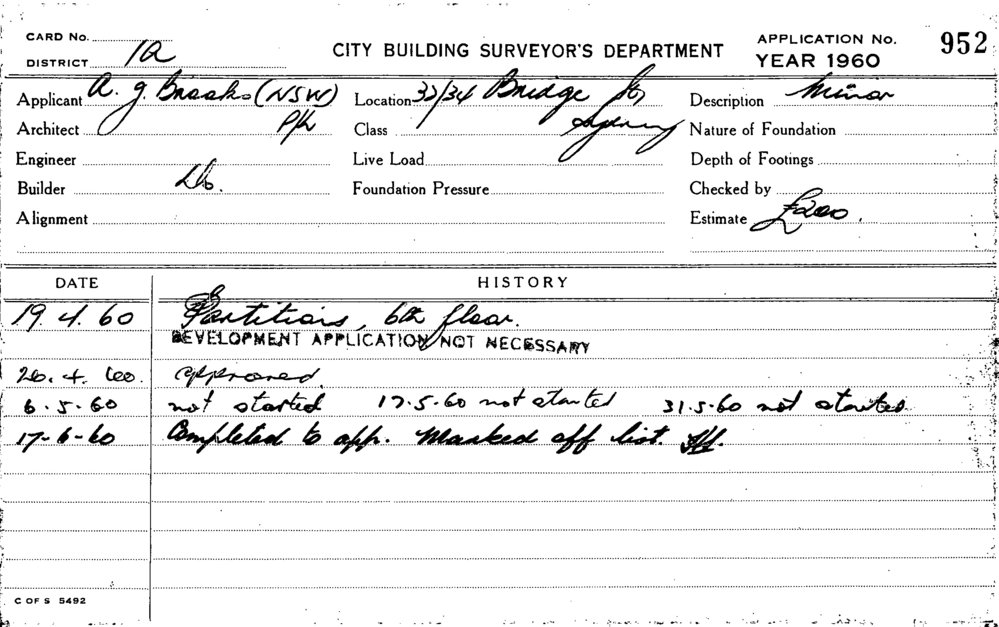 CARD No.
DISTRICT 1a
CITY BUILDING SURVEYOR'S DEPARTMENT
APPLICATION No. 952
YEAR 1960
Applicant A. J. Brooks (NSW) P/L
Location 32/34 Bridge St, Sydney
Description Minor
Architect
Class
Nature of Foundation
Engineer
Live Load
Depth of Footings
Builder Do.
Foundation Pressure
Checked by
Alignment
Estimate £200.
DATE HISTORY
19.4.60 Partitions, 6th floor.
DEVELOPMENT APPLICATION NOT NECESSARY
26.4.60. approved.
6.5.60 not started 17.5.60 not started 31.5.60 not started
17-6-60 Completed to app. Marked off list.
C OF S 5492